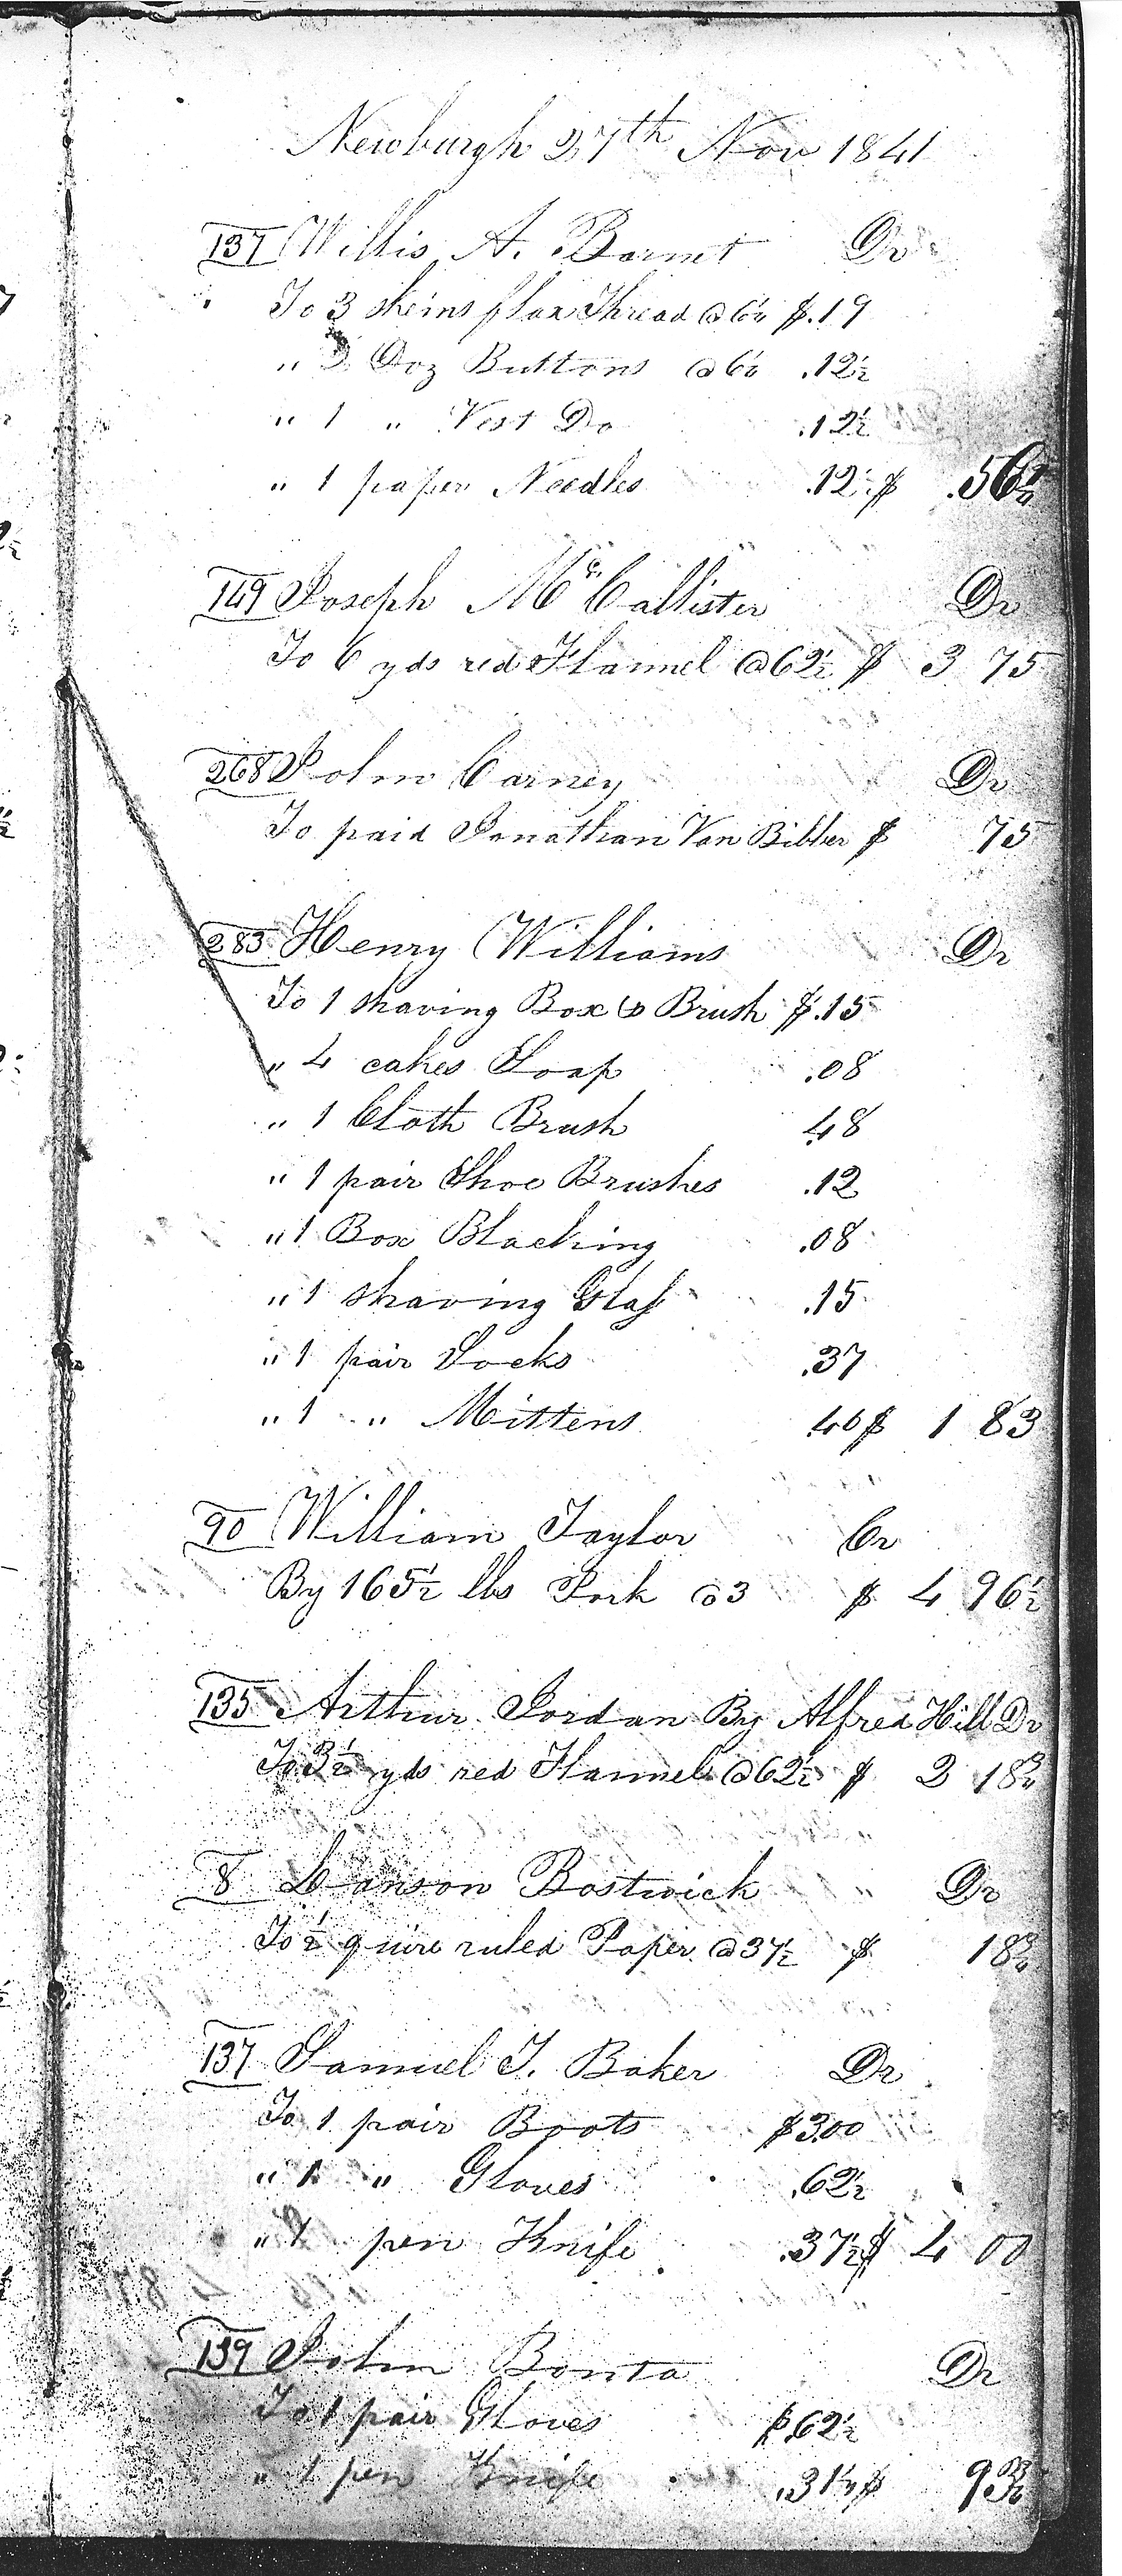 Newburgh 27th Nov 1841
137 Willis A. Barnet Dr
To 3 skeins flax Thread @ 6¼ $.19
" 2 Doz Buttons @ 6¼ .12½
" 1 " Vest Do .12½
" 1 paper Needles .12½ $ .56¼
149 Joseph McCallister Dr
To 6 yds red Flannel @ 62½ $ 3 75
268 John Carney Dr
To paid Jonathan Van Bibber $ 75
283 Henry Williams Dr
To 1 shaving Box & Brush $.15
" 4 cakes Soap .08
" 1 Cloth Brush 48
" 1 pair Shoe Brushes .12
" 1 Box Blacking .08
" 1 shaving Glass .15
" 1 pair Socks .37
" 1 " Mittens .40 $ 1 83
90 William Taylor Cr
By 165½ lbs Pork @ 3 $ 4 96½
135 Arthur Jordan By Alfred Hill Dr
To 3½ yds red Flannel @ 62½ $ 2 18¾
8 Lanson Bostwick Dr
To ½ quire ruled Paper @ 37½ $ 18¾
137 Samuel T. Baker Dr
To 1 pair Boots $3.00
" 1 " Gloves .62½
" 1 pen Knife .37½ $ 4 00
139 John Bonta Dr
To 1 pair Gloves $.62½
" 1 pen Knife .31¼ $ 93¾